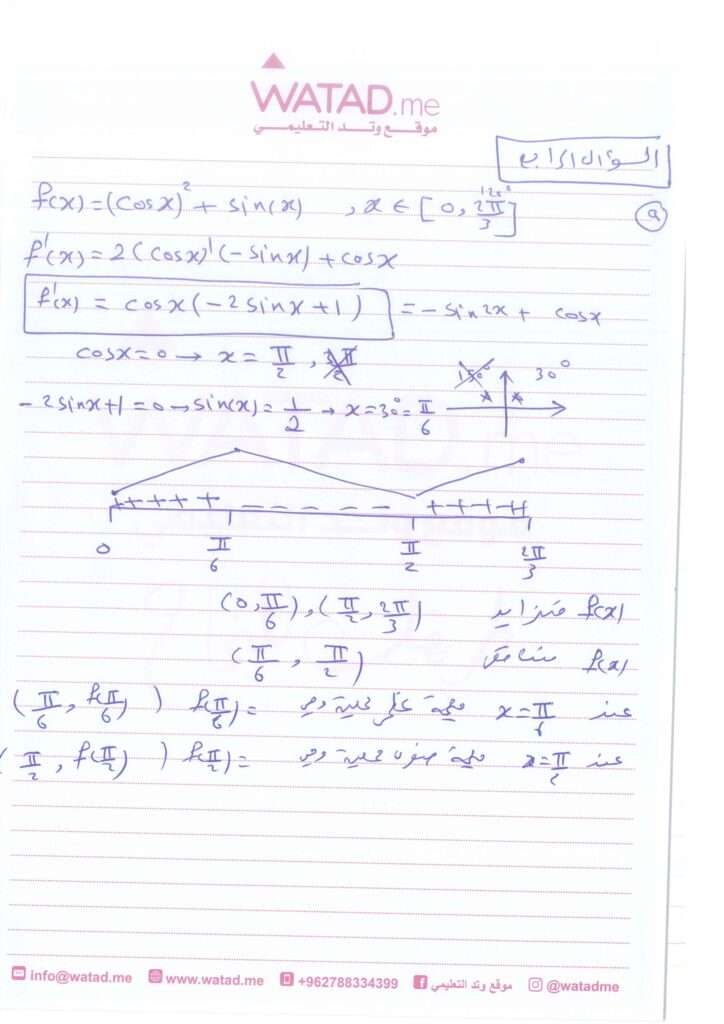 WATAD.me
موقع وتد التعليمي
السؤال الرابع
a
f(x) = (cosx)² + sin(x) , x ∈ [0, 2π/3] 120°
f'(x) = 2(cosx)¹(-sinx) + cosx
f'(x) = cosx(-2sinx+1) = -sin2x + cosx
cosx=0 → x = π/2 , 3π/2
-2sinx+1=0 → sin(x)=1/2 → x=30°=π/6
150° 30°
+++++ ------ +++++
0 π/6 π/2 2π/3
f(x) متزايد (0, π/6), (π/2, 2π/3)
f(x) متناقص (π/6, π/2)
عند x=π/6 قيمة عظمى محلية وهي f(π/6)= (π/6, f(π/6))
عند x=π/2 قيمة صغرى محلية وهي f(π/2)= (π/2, f(π/2))
info@watad.me www.watad.me +962788334399 موقع وتد التعليمي @watadme